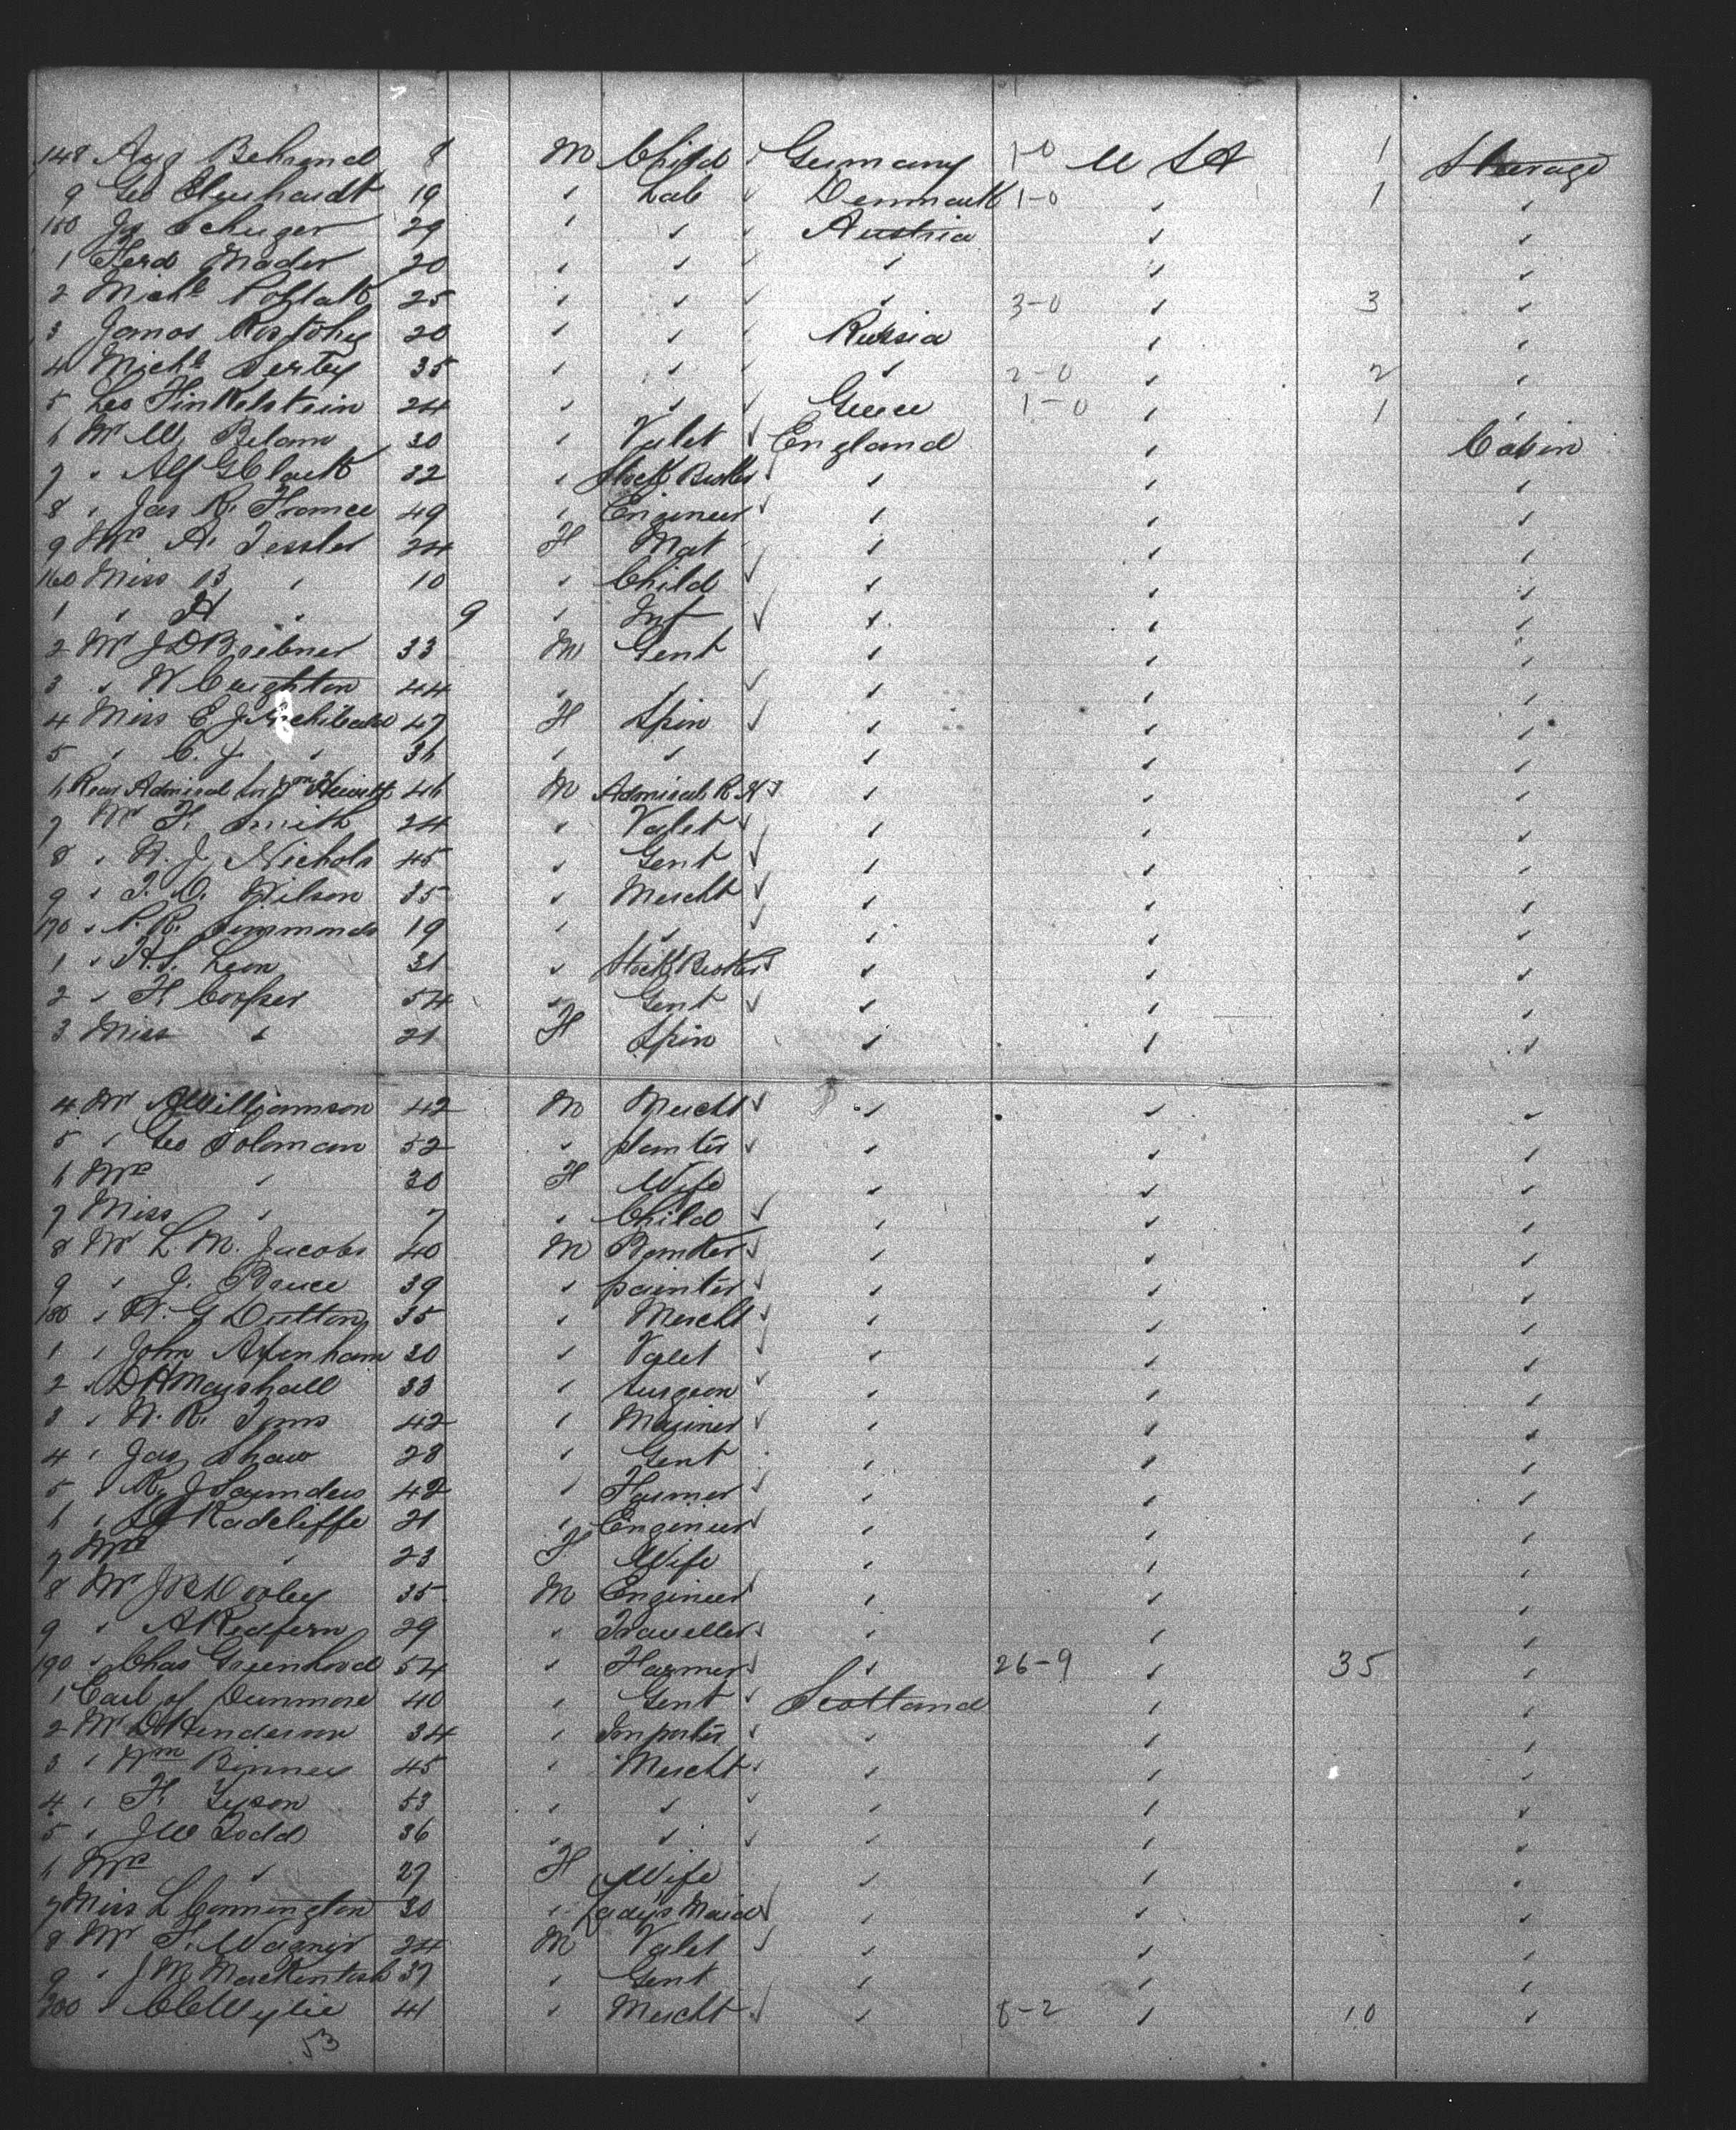 148 Aug Behrend 8 M Child Germany 1-0 U S A 1 Steerage
9 Geo 19 " Lab Denmark 1-0 " 1 "
150 29 " " Austria " "
1 Ferd Mader 20 " " " " "
2 Michl 25 " " " 3-0 " 3 "
3 Janos 20 " " Russia " "
4 Michl 35 " " " 2-0 " 2 "
5 Leo Finkelstein 24 " " Greece 1-0 " 1 "
6 Mr W. Belam 30 " Valet England " Cabin
7 " Alf G Clark 32 " Stock Broker " " "
8 " Jas R. France 49 " Engineer " " "
9 Mrs A. Tessler 24 F Mat " " "
160 Miss B " 10 " Child " " "
1 " A " 9 " Inf " " "
2 Mr J D Briebner 33 M Gent " " "
3 " W Creighton 44 " " " " "
4 Miss E. J Archibald 47 F Spin " " "
5 " C. J " 36 " " " " "
6 Rear Admiral Sir Wm Hewitt 46 M Admiral R N " " "
7 Mr F. Smith 24 " Valet " " "
8 " W. J. Nichols 45 " Gent " " "
9 " T. O. Wilson 35 " Mercht " " "
170 " P. R. Simmonds 19 " " " " "
1 " H. S. Leon 31 " Stock Broker " " "
2 " F. Cooper 54 " Gent " " "
3 Miss " 21 F Spin " " "
4 Mr A Williamson 42 M Mercht " " "
5 " Geo Soloman 52 " " " "
6 Mrs " 30 F Wife " " "
7 Miss " 7 " Child " " "
8 Mr L. M. Jacobs 40 M Banker " " "
9 " J. Bruce 39 " painter " " "
180 " W. G Dutton 35 " Mercht " " "
1 " John Axenham 30 " Valet " " "
2 " D H Marshall 33 " Surgeon " " "
3 " W. R. Tyms 42 " Mariner " " "
4 " Jas Shaw 28 " Gent " " "
5 " R. J Saunders 42 " Farmer " " "
6 " Radcliffe 21 " Engineer " " "
7 Mrs " 23 F Wife " " "
8 Mr J B Dooley 35 M Engineer " " "
9 " A Redfern 29 " Traveller " " "
190 " Chas Greenhood 54 " Farmer " 26-9 " 35 "
1 Earl of Dunmore 40 " Gent Scotland " "
2 Mr D Henderson 34 " Importer " " "
3 " Wm Binney 45 " Mercht " " "
4 " F. Tyson 53 " " " " "
5 " J W Todd 36 " " " " "
6 Mrs " 27 F Wife " " "
7 Miss L Connington 30 " Lady's Maid " " "
8 Mr F. Wagner 24 M Valet " " "
9 " J. M. Mackintosh 37 " Gent " " "
200 " C C Wylie 41 " Mercht " 8-2 " 10 "
53